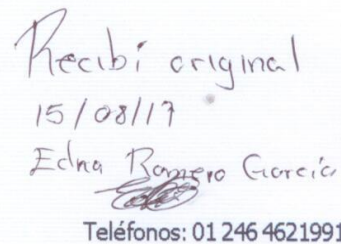 Recibí original
15/08/17
Edna Romero García
Teléfonos: 01 246 4621991